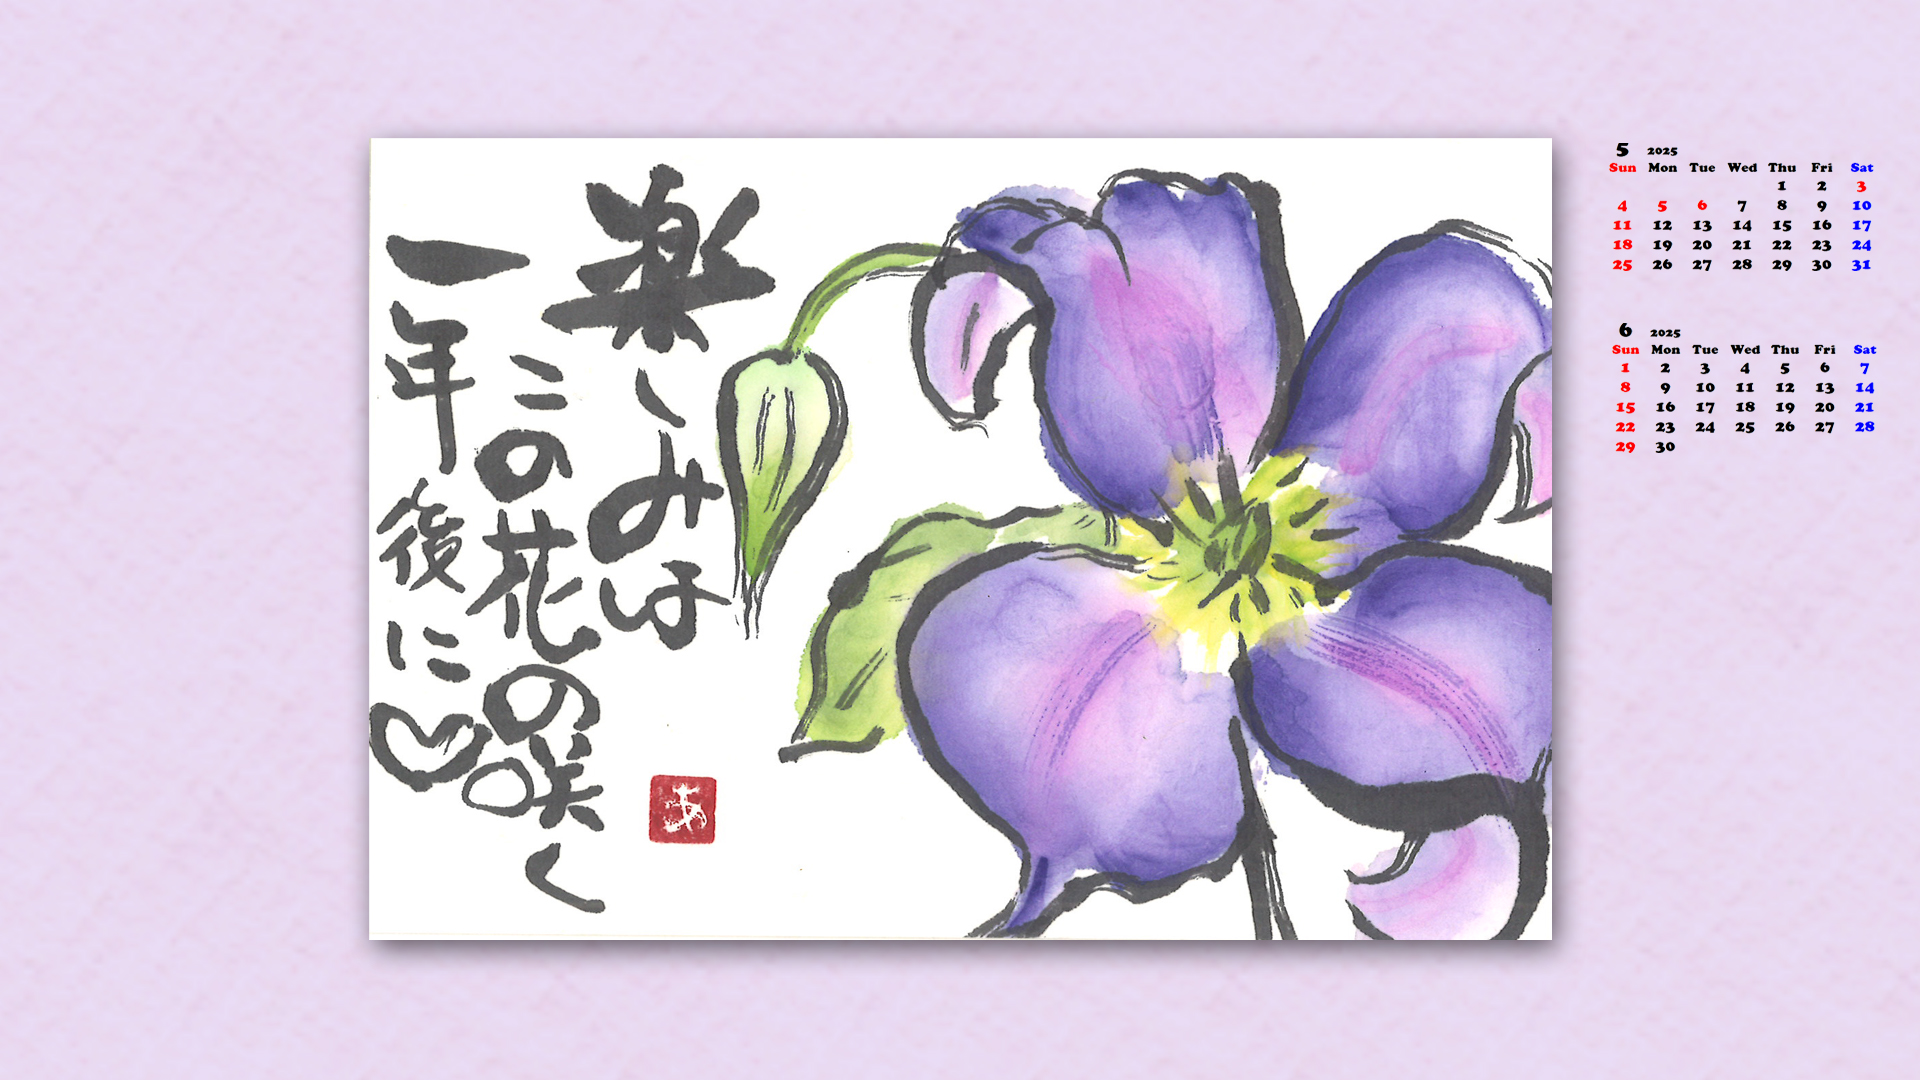 楽しみは
この花の咲く
一年後に♡
あ
5 2025
Sun Mon Tue Wed Thu Fri Sat
1 2 3
4 5 6 7 8 9 10
11 12 13 14 15 16 17
18 19 20 21 22 23 24
25 26 27 28 29 30 31
6 2025
Sun Mon Tue Wed Thu Fri Sat
1 2 3 4 5 6 7
8 9 10 11 12 13 14
15 16 17 18 19 20 21
22 23 24 25 26 27 28
29 30